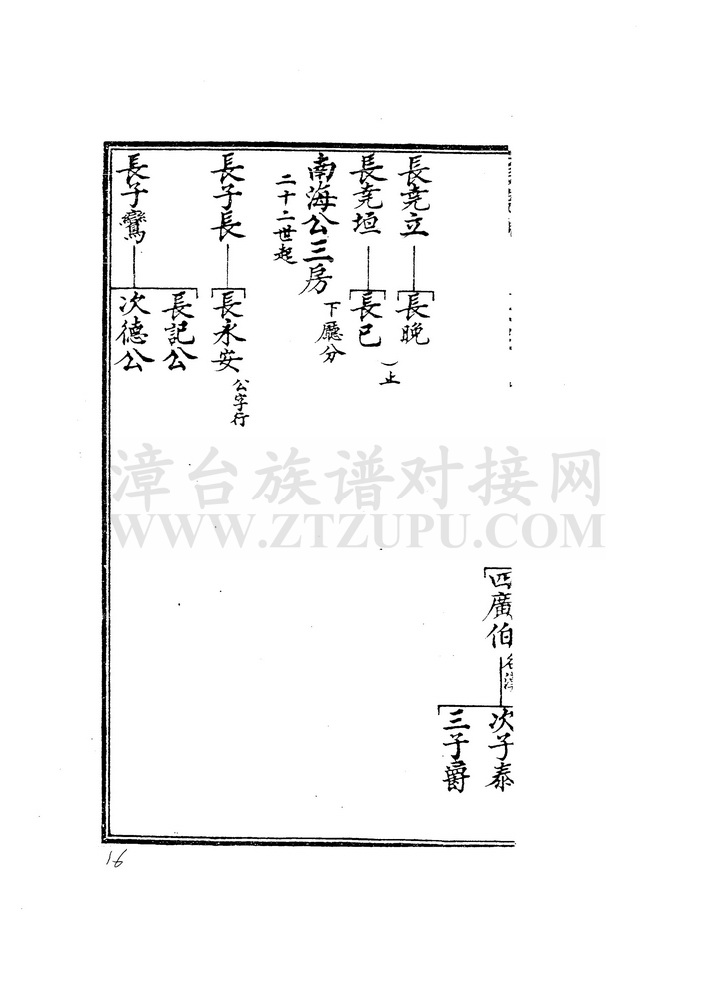 長堯立
長晚
長堯垣
長已
(止
南海公三房
二十二世起
下廳分
長子長
長永安
公字行
長子鸞
長記公
次德公
四廣伯
次子泰
三子爵
漳台族谱对接网
WWW.ZTZUPU.COM
16